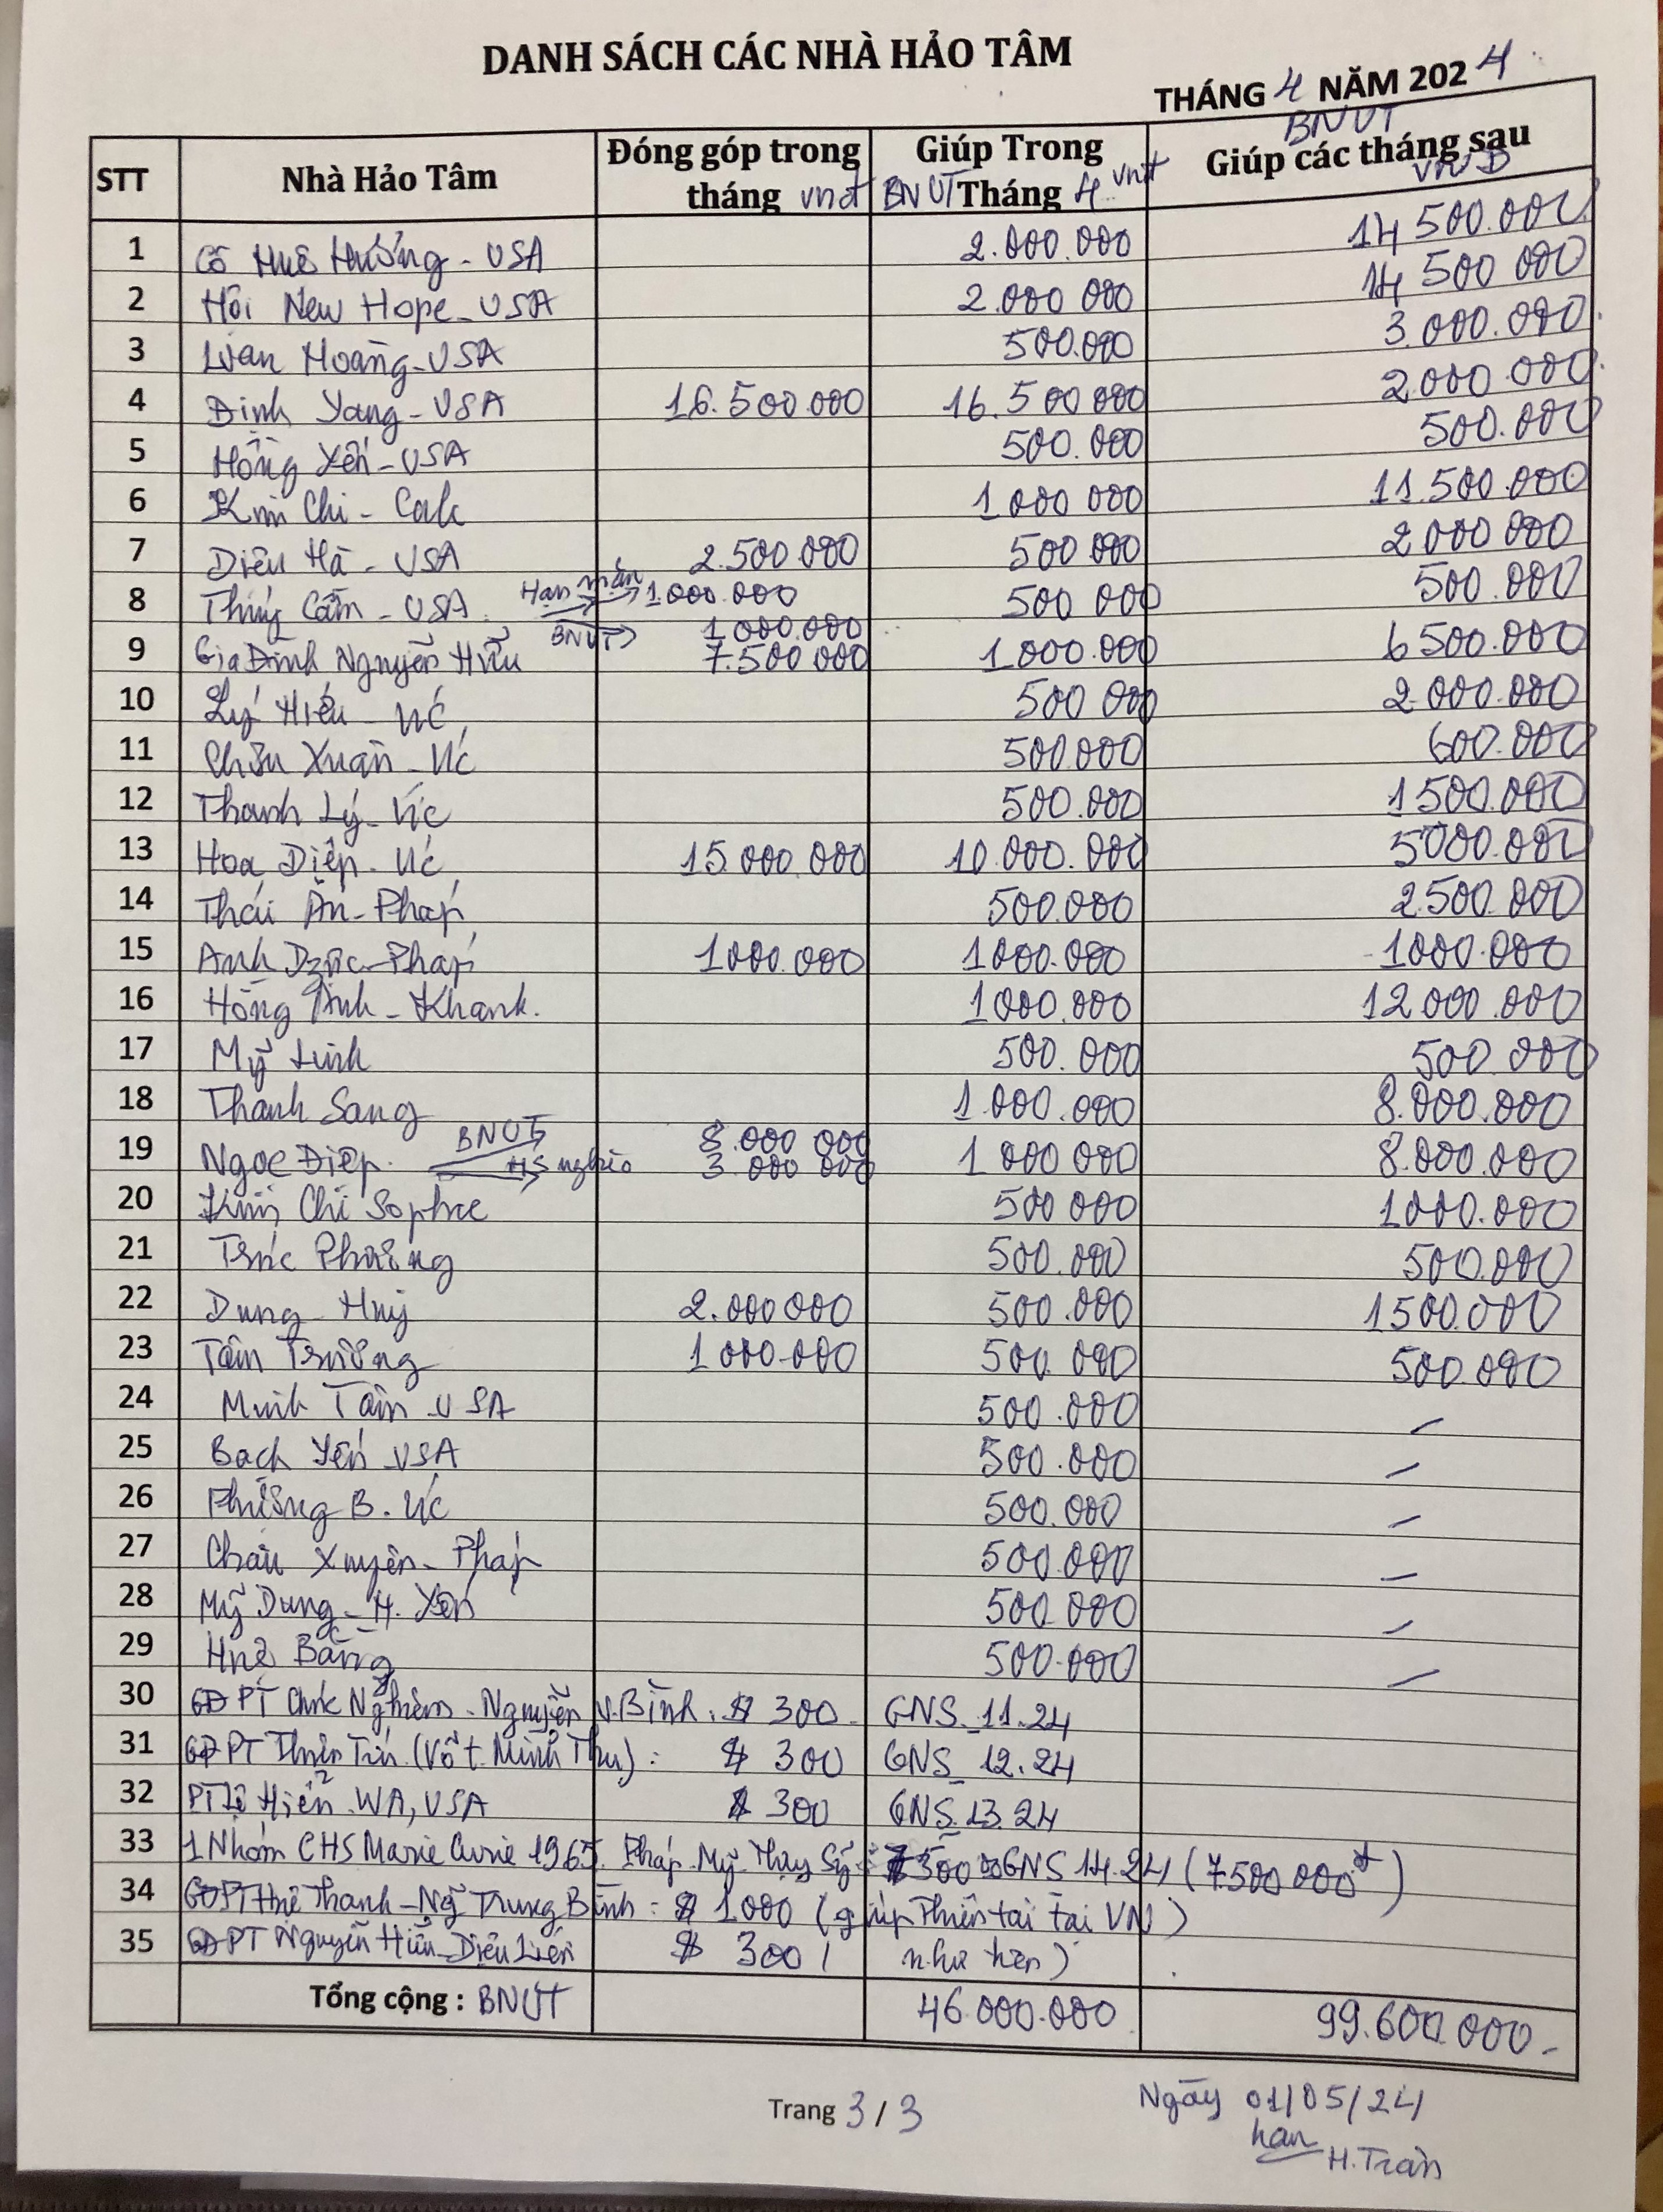 DANH SÁCH CÁC NHÀ HẢO TÂM
THÁNG 4 NĂM 2024
STT Nhà Hảo Tâm Đóng góp trong tháng vnđ Giúp Trong Tháng 4 vnđ BNUT Giúp các tháng sau BNUT VNĐ
1 Cô Huê Hướng - USA 2.000.000 14 500.000
2 Hội New Hope - USA 2.000 000 14 500 000
3 Loan Hoàng - USA 500.000 3.000.000
4 Định Yang - USA 16.500.000 16.500 000 2000 000
5 Hồng Yến - USA 500.000 500.000
6 Kim Chi - Cali 1 000 000 11.500.000
7 Diệu Hà - USA 2.500 000 500 000 2000 000
8 Thúy Cầm - USA Hạn mặn 1.000.000 500 000 500.000
BNUT 1 000.000
9 Gia Đình Nguyễn Hữu 7.500 000 1.000.000 6 500.000
10 Lý Hiếu - Úc 500 000 2.000.000
11 Châu Xuân - Úc 500.000 600.000
12 Thanh Lý - Úc 500.000 1500.000
13 Hoa Diệp - Úc 15.000 000 10.000.000 5000.000
14 Thái Ân - Pháp 500.000 2.500.000
15 Anh Dzũc - Pháp 1000.000 1000.000 1000.000
16 Hồng Ánh - Khank. 1000.000 12000.000
17 Mỹ Linh 500.000 500 000
18 Thanh Sang 1.000.000 8.000.000
19 Ngọc Điệp. BNUT 8.000 000 1 000 000 8.000.000
HS nghèo 3.000 000
20 Kim Chi Sophie 500 000 1000.000
21 Trúc Phương 500.000 500.000
22 Dung - Huy 2.000 000 500.000 1500.000
23 Tâm Trương 1 000.000 500.000 500.000
24 Minh Tâm - USA 500.000 -
25 Bach Yến - USA 500.000 -
26 Phương B. Úc 500.000 -
27 Châu Xuyên - Pháp 500.000 -
28 Mỹ Dung - H. Yến 500 000 -
29 Huê Bằng 500.000 -
30 GĐ PT Chúc Nghiêm - Nguyễn V. Bình: $ 300 GNS_11.24
31 GĐ PT Thiên Tín (Võ t. Minh Thu): $ 300 GNS_12.24
32 PT Lệ Hiền WA, USA $ 300 GNS_13.24
33 1 Nhóm CHS Marie Curie 1965. Pháp - Mỹ - Thụy Sỹ: $300 GNS 14.24 (7500 000đ)
34 GĐ PT Huê Thanh - Ng Trung Bình: $ 1000 (giúp Thiên tai tại VN)
35 GĐ PT Nguyễn Hữu - Diệu Liên $ 300 ( như trên)
Tổng cộng: BNUT 46.000.000 99.600.000-
Trang 3 / 3
Ngày 01/05/24
H.Trần